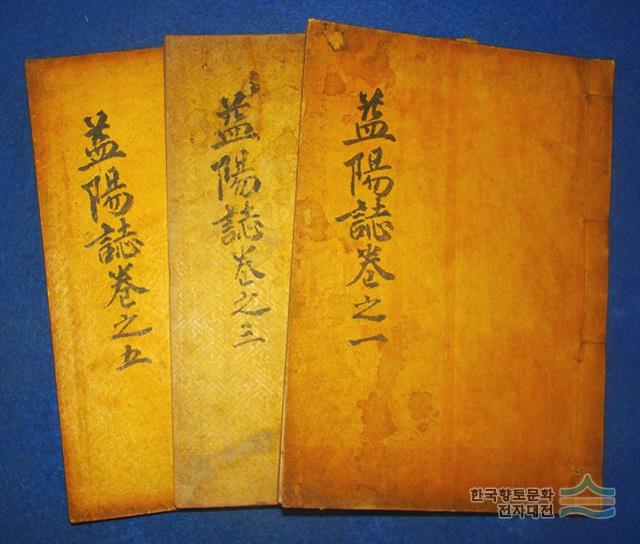 益陽誌卷之一
益陽誌卷之三
益陽誌卷之五
한국향토문화
전자대전